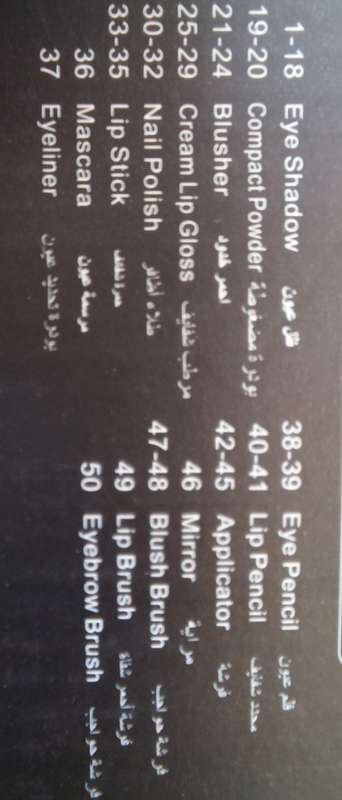 1-18 Eye Shadow ظل عيون
19-20 Compact Powder بودرة مضغوطة
21-24 Blusher احمر خدود
25-29 Cream Lip Gloss مرطب شفايف
30-32 Nail Polish طلاء أظافر
33-35 Lip Stick
36 Mascara مرسمة عيون
37 Eyeliner بودرة تحديد عيون
38-39 Eye Pencil قلم عيون
40-41 Lip Pencil محدد شفايف
42-45 Applicator فرشة
46 Mirror مراية
47-48 Blush Brush فرشة حواجب
49 Lip Brush فرشة أحمر شفاة
50 Eyebrow Brush فرشة حواجب